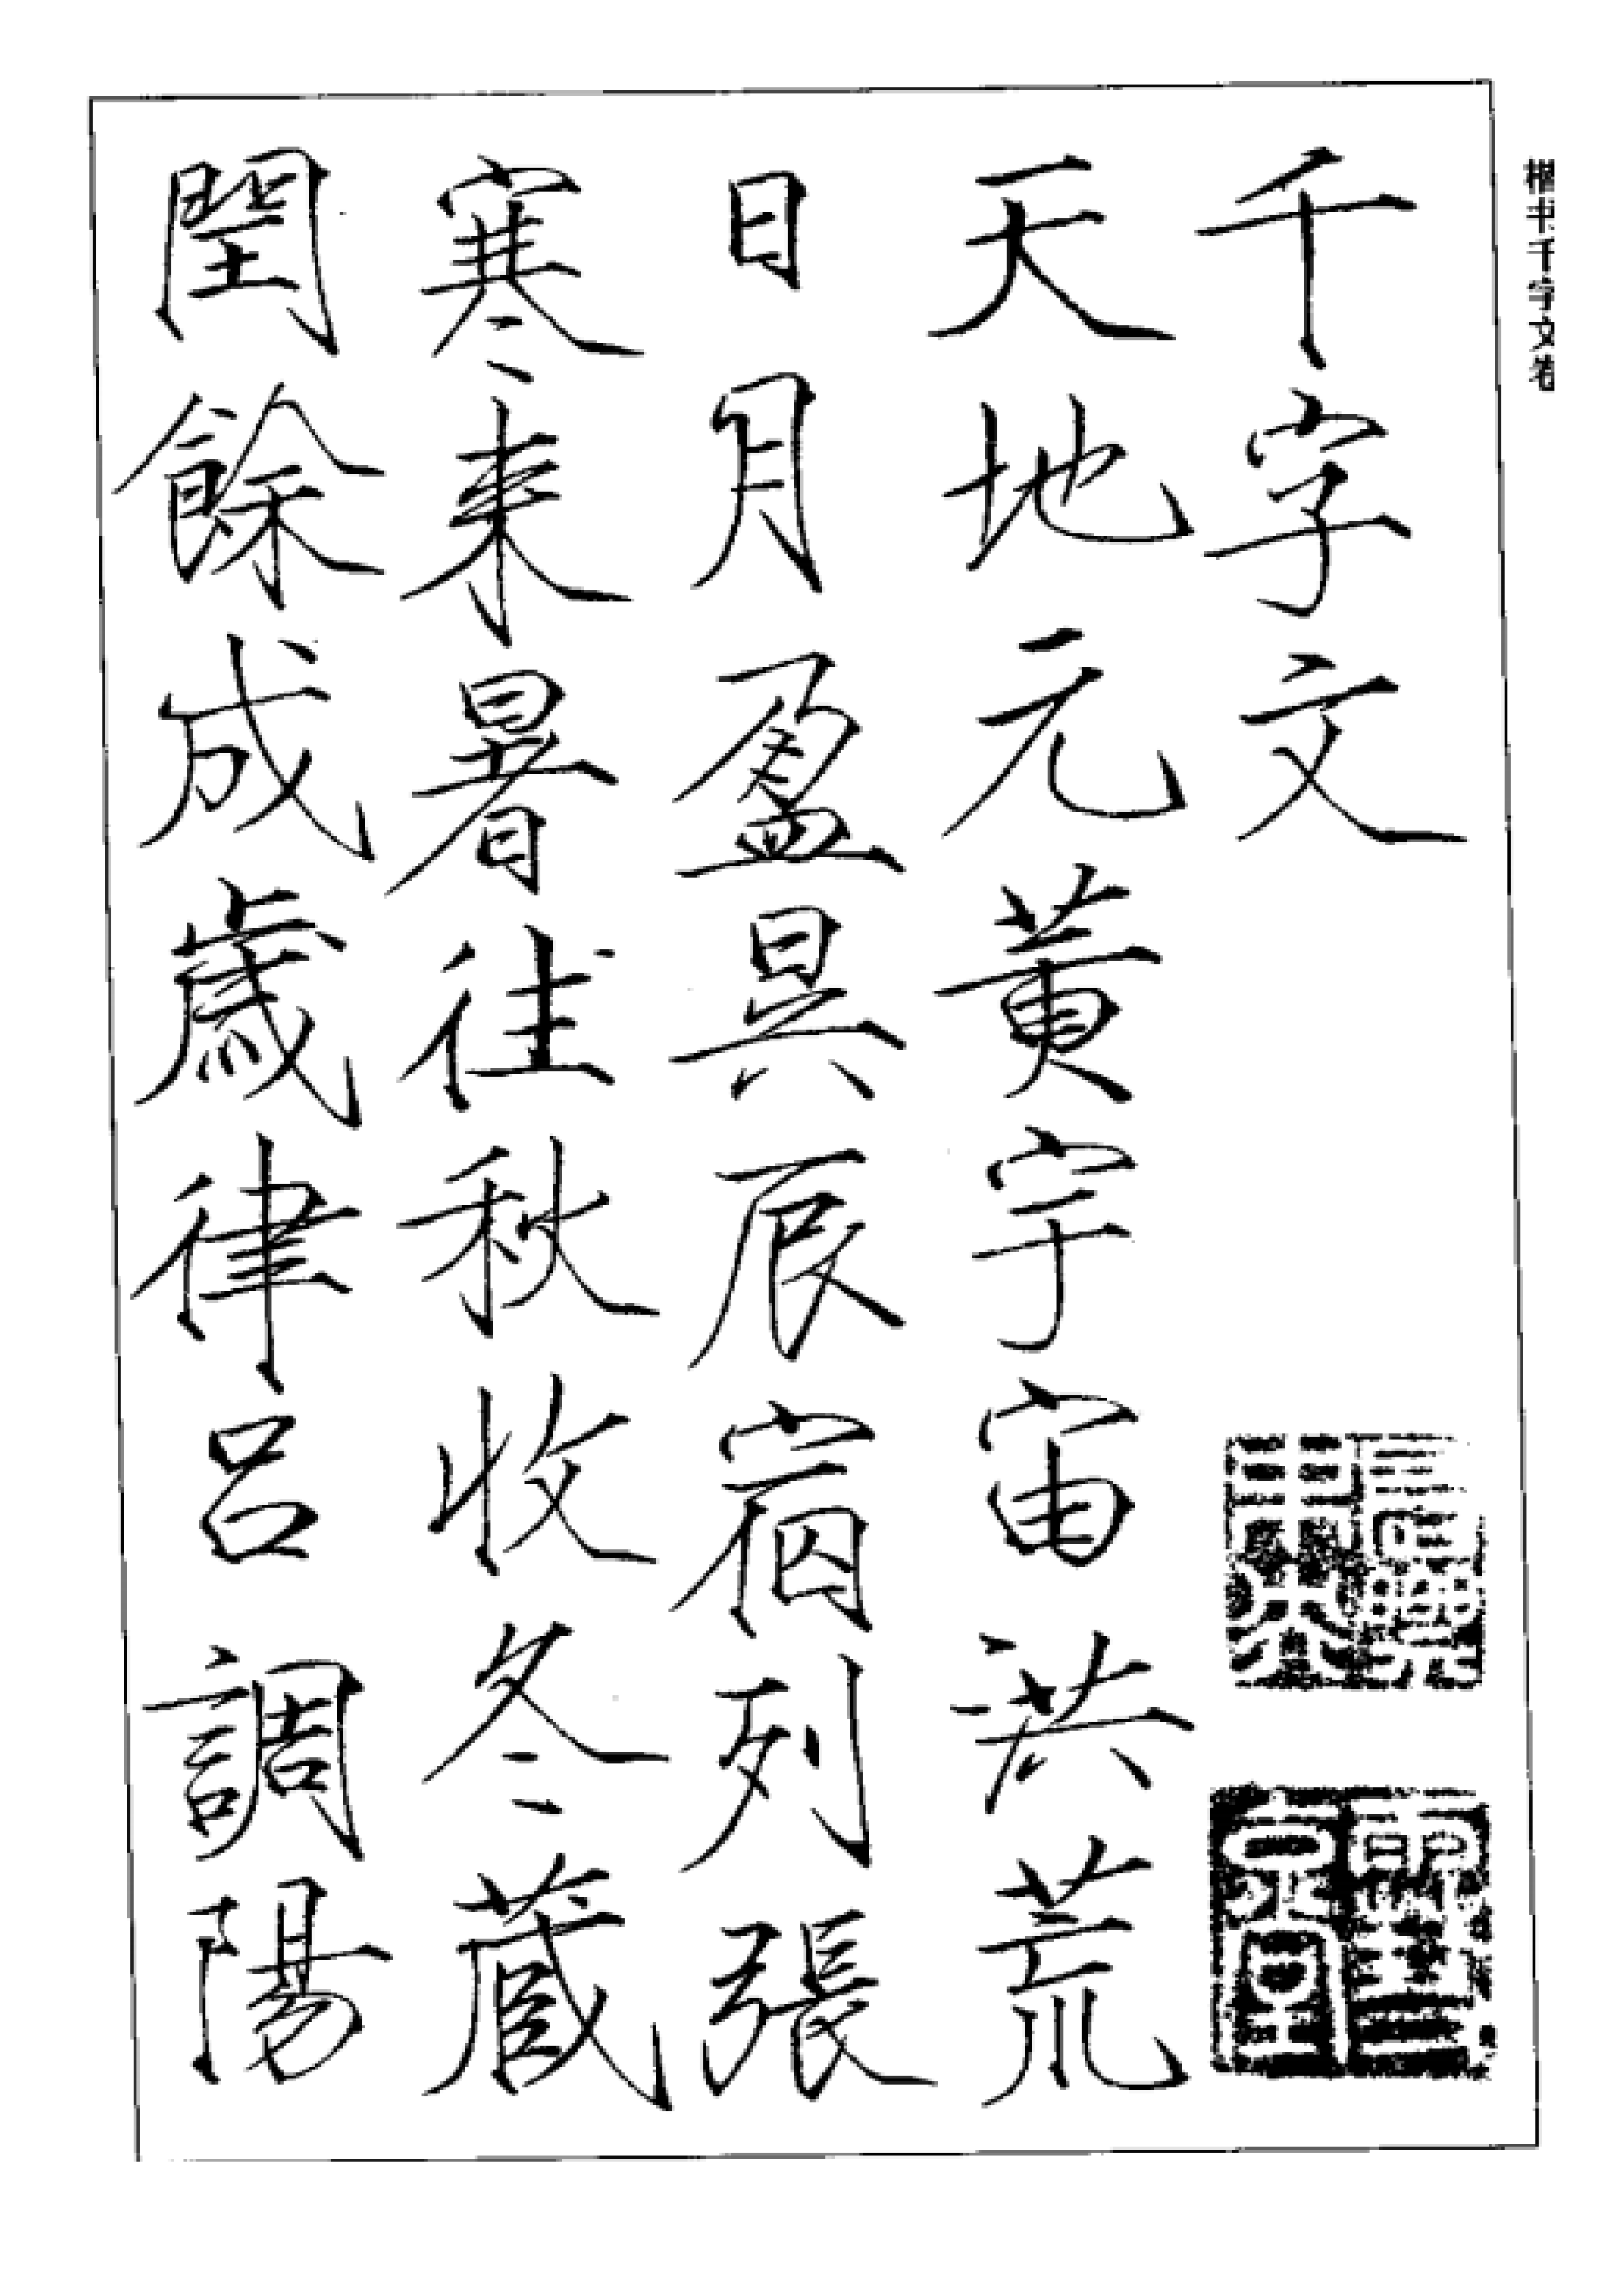 楷书千字文卷
千字文
天地元黄宇宙洪荒
日月盈昃辰宿列張
寒来暑往秋收冬蔵
閏餘成歲律吕調陽